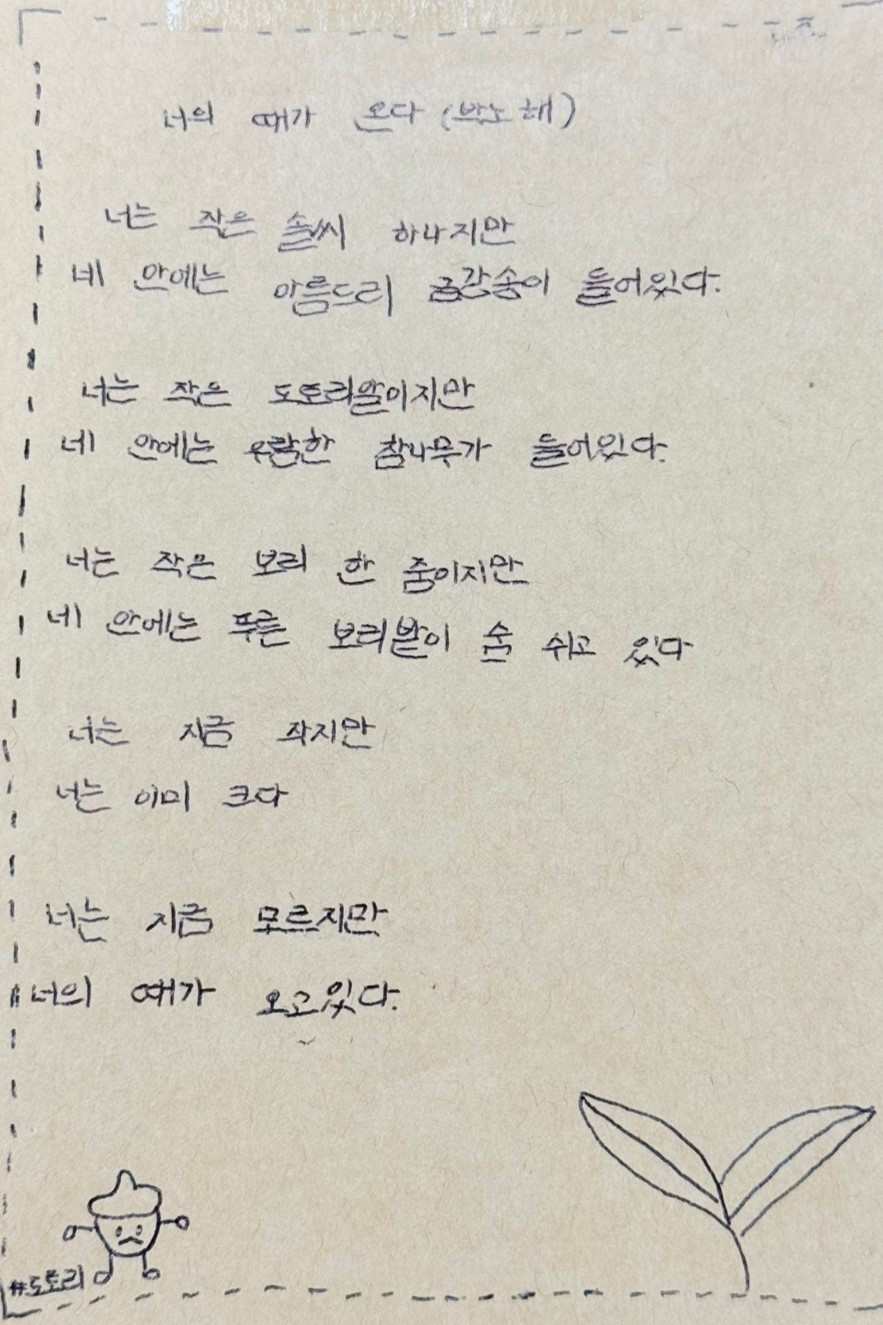 너의 때가 온다 (박노해)
너는 작은 솔씨 하나지만
네 안에는 아름드리 금강송이 들어있다.
너는 작은 도토리알이지만
네 안에는 우람한 참나무가 들어있다.
너는 작은 보리 한 줌이지만
네 안에는 푸른 보리밭이 숨 쉬고 있다
너는 지금 작지만
너는 이미 크다
너는 지금 모르지만
너의 때가 오고있다.
#도토리